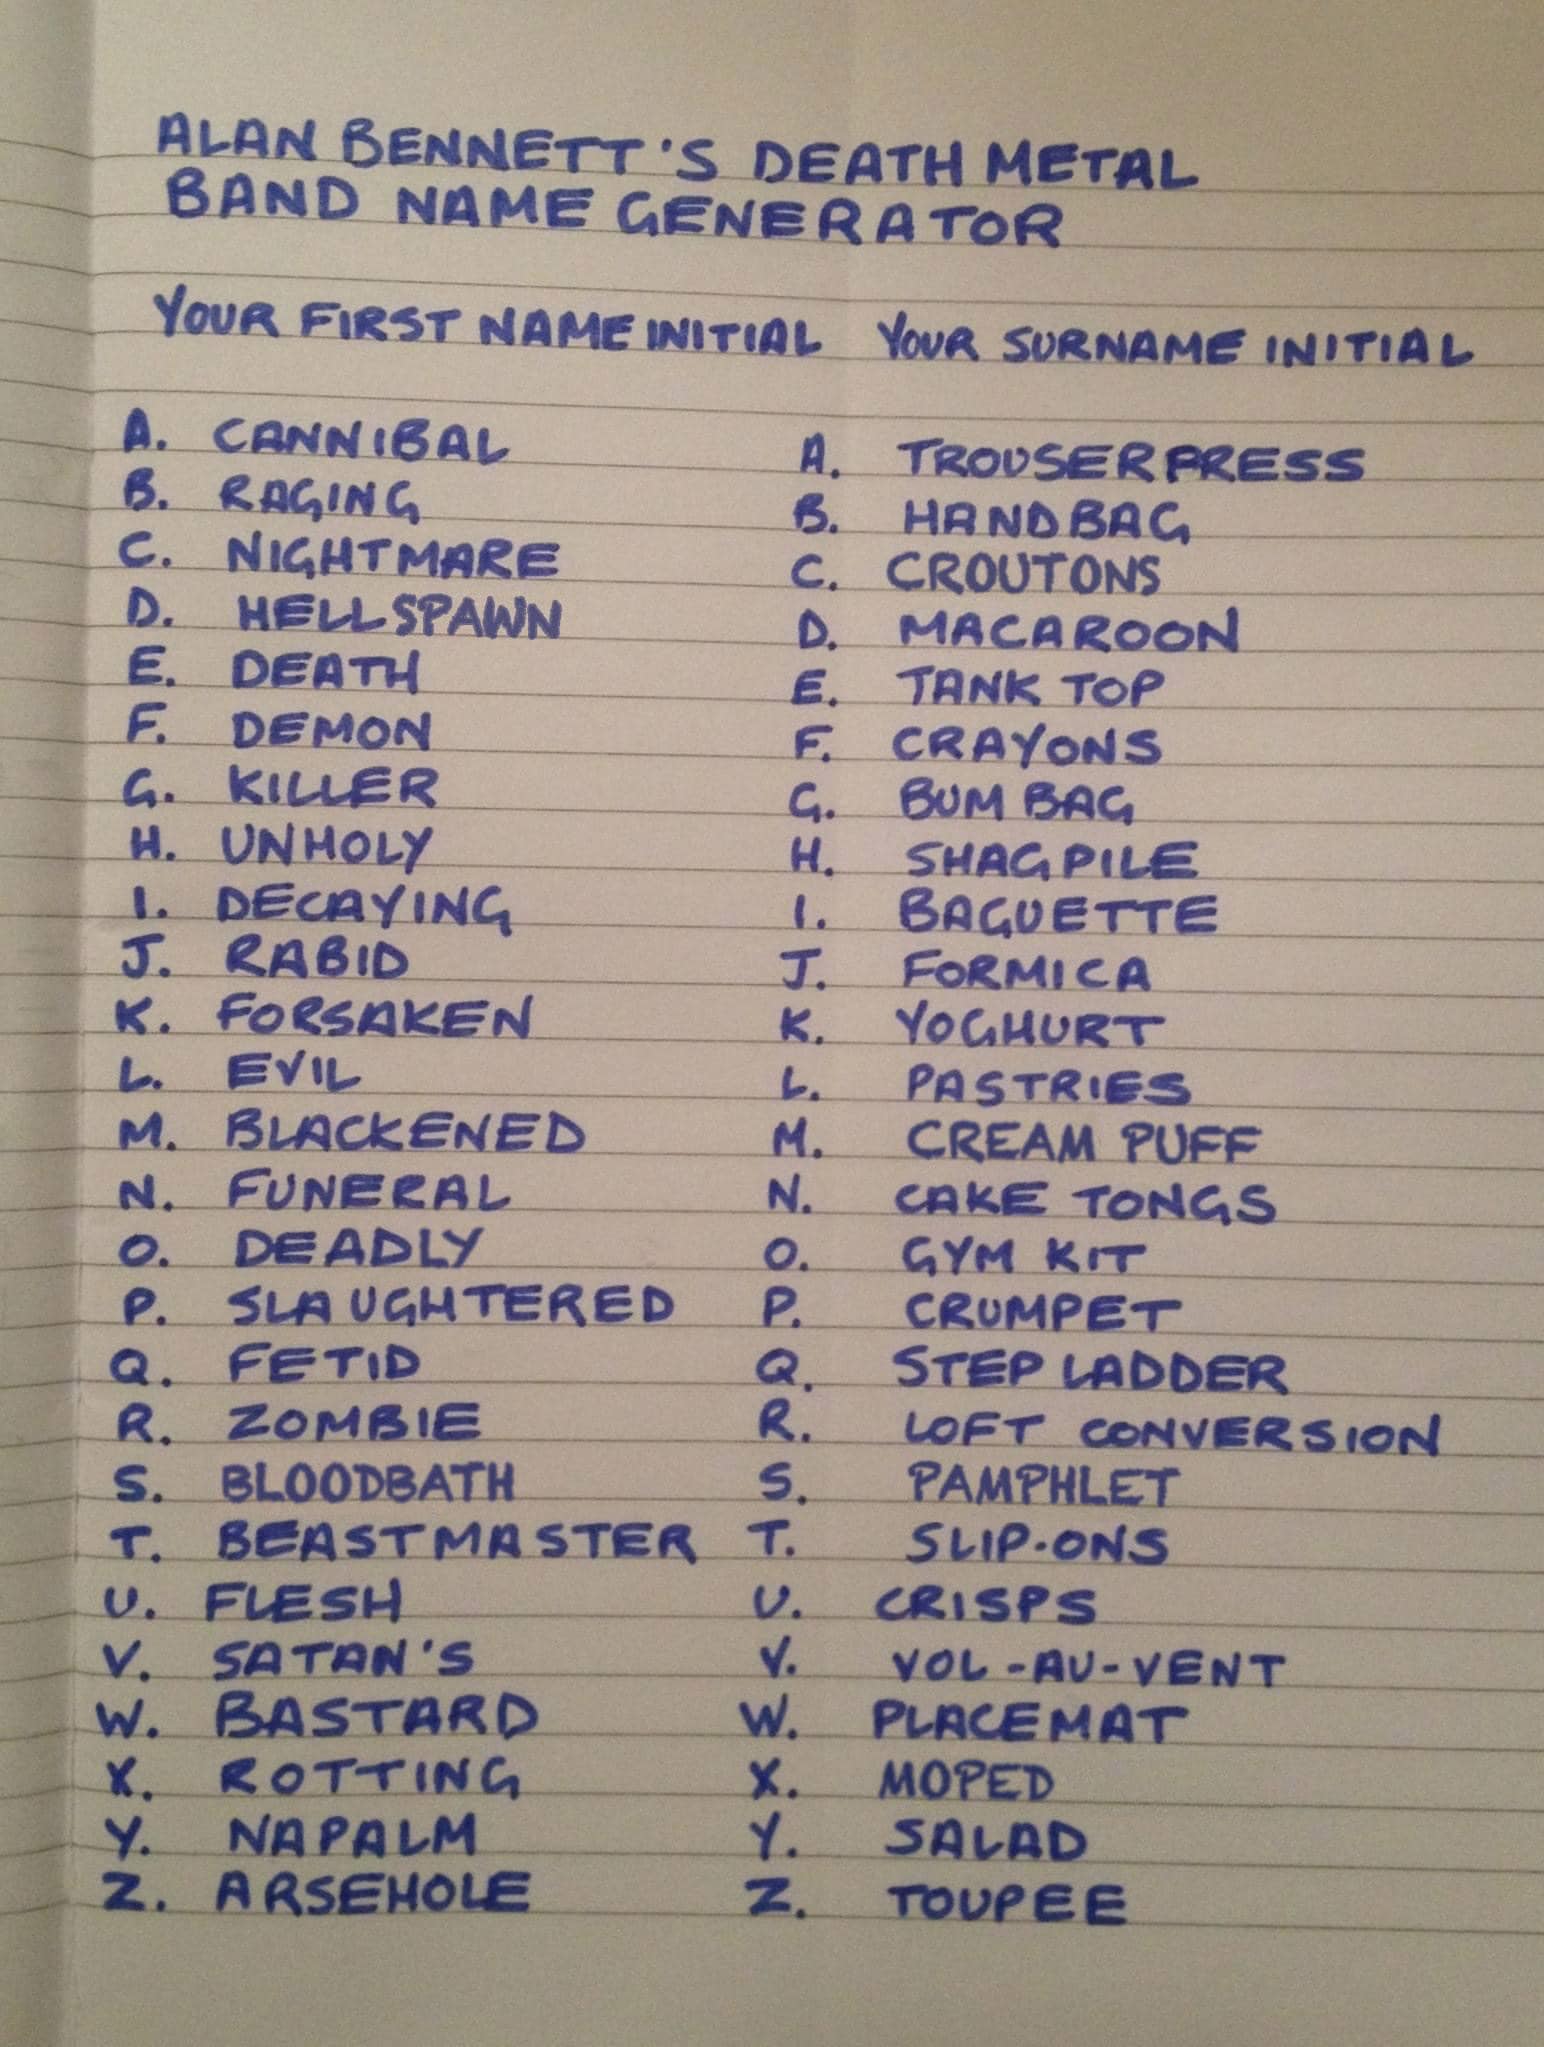 ALAN BENNETT'S DEATH METAL
BAND NAME GENERATOR
YOUR FIRST NAME INITIAL YOUR SURNAME INITIAL
A. CANNIBAL A. TROUSER PRESS
B. RAGING B. HANDBAG
C. NIGHTMARE C. CROUTONS
D. HELLSPAWN D. MACAROON
E. DEATH E. TANK TOP
F. DEMON F. CRAYONS
G. KILLER G. BUM BAG
H. UNHOLY H. SHAG PILE
I. DECAYING I. BAGUETTE
J. RABID J. FORMICA
K. FORSAKEN K. YOGHURT
L. EVIL L. PASTRIES
M. BLACKENED M. CREAM PUFF
N. FUNERAL N. CAKE TONGS
O. DEADLY O. GYM KIT
P. SLAUGHTERED P. CRUMPET
Q. FETID Q. STEP LADDER
R. ZOMBIE R. LOFT CONVERSION
S. BLOODBATH S. PAMPHLET
T. BEASTMASTER T. SLIP-ONS
U. FLESH U. CRISPS
V. SATAN'S V. VOL-AU-VENT
W. BASTARD W. PLACEMAT
X. ROTTING X. MOPED
Y. NAPALM Y. SALAD
Z. ARSEHOLE Z. TOUPEE